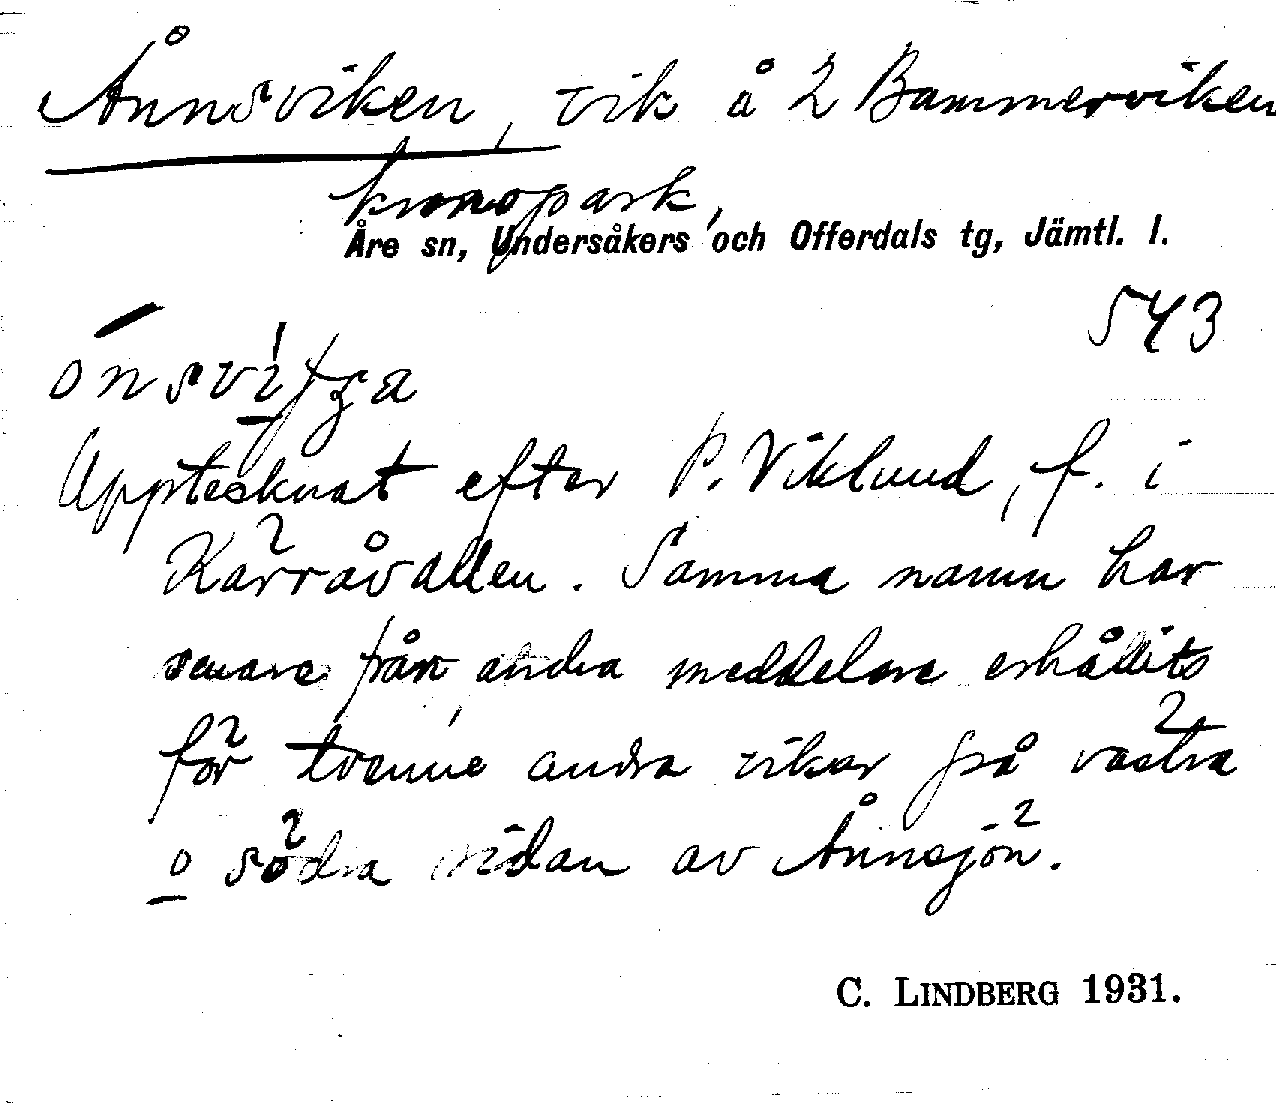 Ånnsviken, vik å 2 Bammerviken
kronopark,
Åre sn, Undersåkers och Offerdals tg, Jämtl. l.
543
Upptecknat efter P. Viklund, f. i
Kärråvallen. Samma namn har
senare från andra meddelare erhållits
för tvenne andra vikar på västra
o södra sidan av Ånnsjön.
C. LINDBERG 1931.